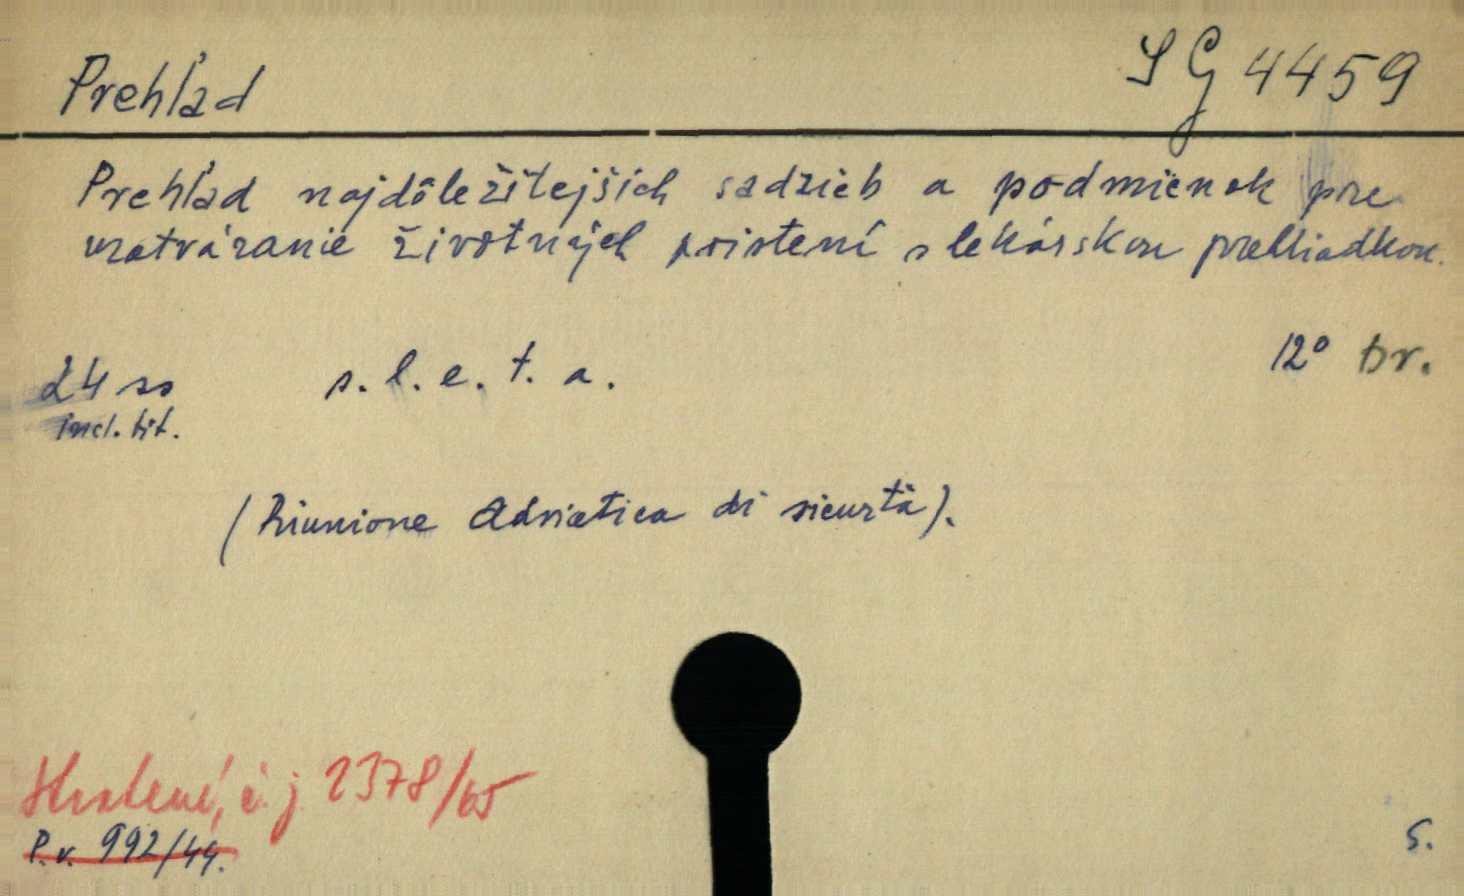 Prehľad
SG 4459
Prehľad najdôležitejších sadzieb a podmienok pre
uzatváranie životných poistení s lekárskou prehliadkou.
24 ss s. l. e. t. a. 12° br.
incl. tit.
(Riunione Adriatica di sicurtà).
Stratené, č. j. 2378/65
P. v. 992/44.
S.